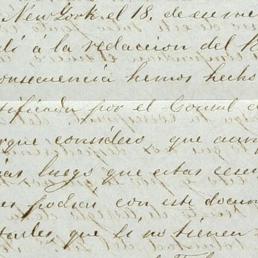 New York el 18. de enero
á la redaccion del
consecuencia hemos hecho
tificada por el Consul
rque considero que aun
luego que estas
podian con este docum
que si no tienen